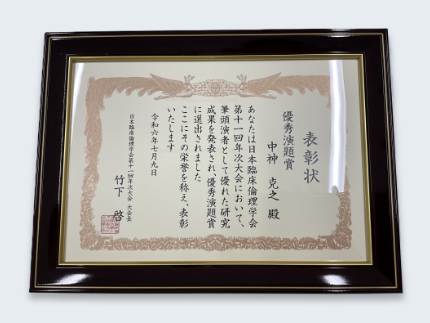 表彰状
優秀演題賞
中神 克之 殿
あなたは日本臨床倫理学会
第十一回年次大会において、
筆頭演者として優れた研究
成果を発表され、優秀演題賞
に選出されました
ここにその栄誉を称え、表彰
いたします
令和六年七月九日
日本臨床倫理学会第十一回年次大会 大会長
竹下 啓